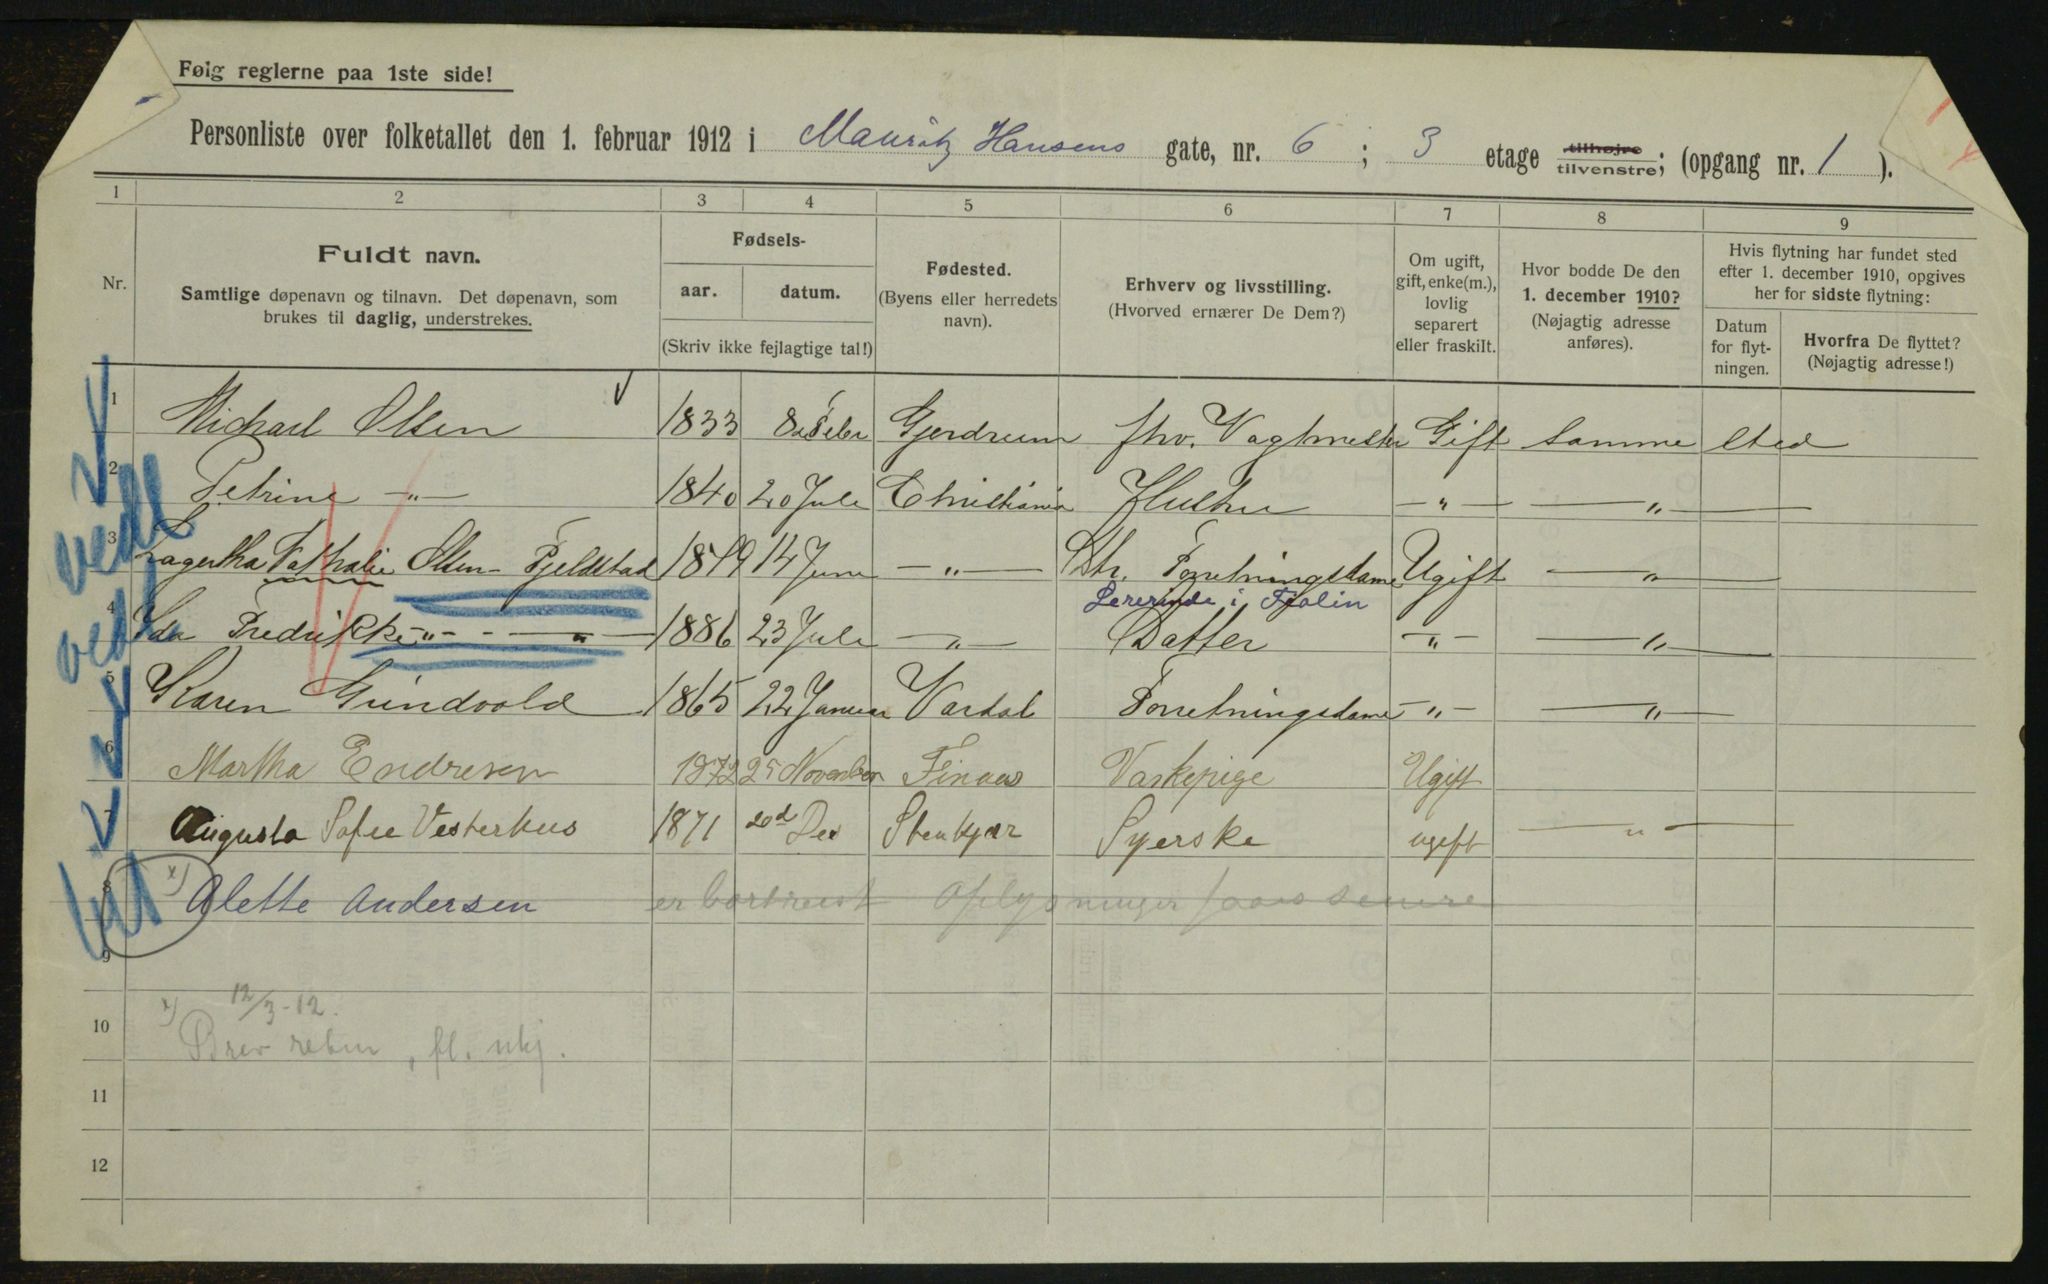 Følg reglerne paa 1ste side!
Personliste over folketallet den 1. februar 1912 i Mauritz Hansens gate, nr. 6; 3 etage tilhøjre tilvenstre; (opgang nr. 1).
1 2 3 4 5 6 7 8 9
Nr.
Fuldt navn.
Samtlige døpenavn og tilnavn. Det døpenavn, som
brukes til daglig, understrekes.
Fødsels-
aar. datum.
(Skriv ikke fejlagtige tal!)
Fødested.
(Byens eller herredets
navn).
Erhverv og livsstilling.
(Hvorved ernærer De Dem?)
Om ugift,
gift, enke(m.),
lovlig
separert
eller fraskilt.
Hvor bodde De den
1. december 1910?
(Nøjagtig adresse
anføres).
Hvis flytning har fundet sted
efter 1. december 1910, opgives
her for sidste flytning:
Datum
for flyt-
ningen.
Hvorfra De flyttet?
(Nøjagtig adresse!)
1 Michael Olsen 1833 8de Feber Gjerdrum fhv. Vagtmester Gift Samme sted
2 Petrine —"— 1840 20 Juli Christiania Hustru —"— —"—
3 Lagertha Nathalie Olsen-Fjeldstad 1879 14 Juni —"— Dtr. Forretningsdame Ugift —"—
Lererinde i Fiolin
4 Ida Fredrikke —"— —"— 1886 23 Juli —"— Datter —"— —"—
5 Karen Gundvold 1865 22 Januar Vardal Forretningsdame —"— —"—
6 Martha Endresen 1872 25 November Finaas Vaskepige Ugift
7 Augusta Sofie Vesterhus 1871 20de Des Stenkjær Syerske ugift —"—
8 x) Alette Andersen er bortreist Oplysninger faaes senere
9
x) 12/3-12.
10 Brev retur, fl. ukj.
11
12